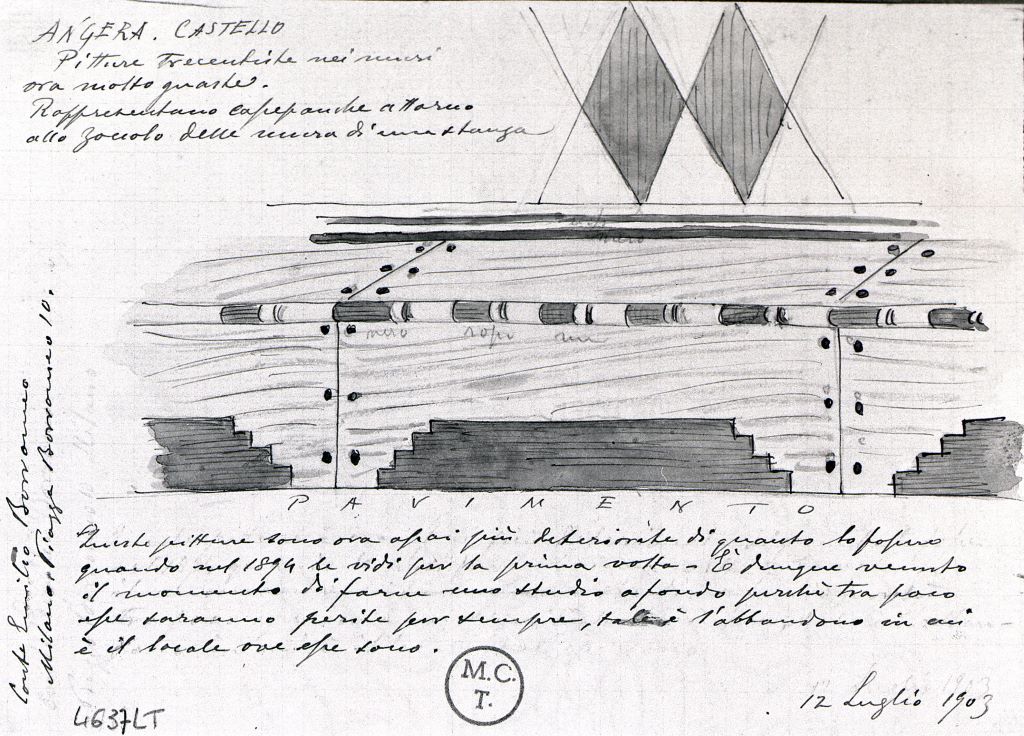 ANGERA. CASTELLO
Pitture trecentiste nei muri
ora molto guaste.
Rappresentano cassepanche attorno
allo zoccolo delle mura di una stanza
nero
nero rosso nero
PAVIMENTO
Queste pitture sono ora assai più deteriorate di quanto lo fossero
quando nel 1894 le vidi per la prima volta - È dunque venuto
il momento di farne uno studio a fondo perchè tra poco
esse saranno perite per sempre, tale è l'abbandono in cui
è il locale ove esse sono.
12 Luglio 1903
M.C.
T.
4637LT
Conte Emilio Borromeo
Milano Piazza Borromeo 10.